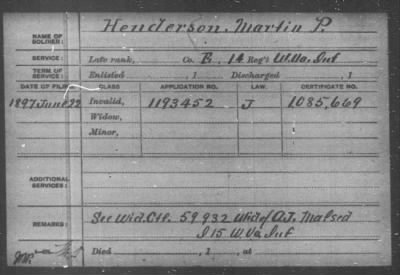 Henderson, Martin P.
NAME OF SOLDIER:
SERVICE: Late rank, Co. E, 14 Reg't W.Va. Inf
TERM OF SERVICE: Enlisted , 1 Discharged , 1
DATE OF FILING CLASS APPLICATION NO. LAW. CERTIFICATE NO.
1897 June 22 Invalid, 1193452 J 1085,669
Widow,
Minor,
ADDITIONAL SERVICES:
REMARKS: See Wid. Ctf. 59932 Wid of A.J. Malsed
I 15 W.Va. Inf
Died , 1 , at